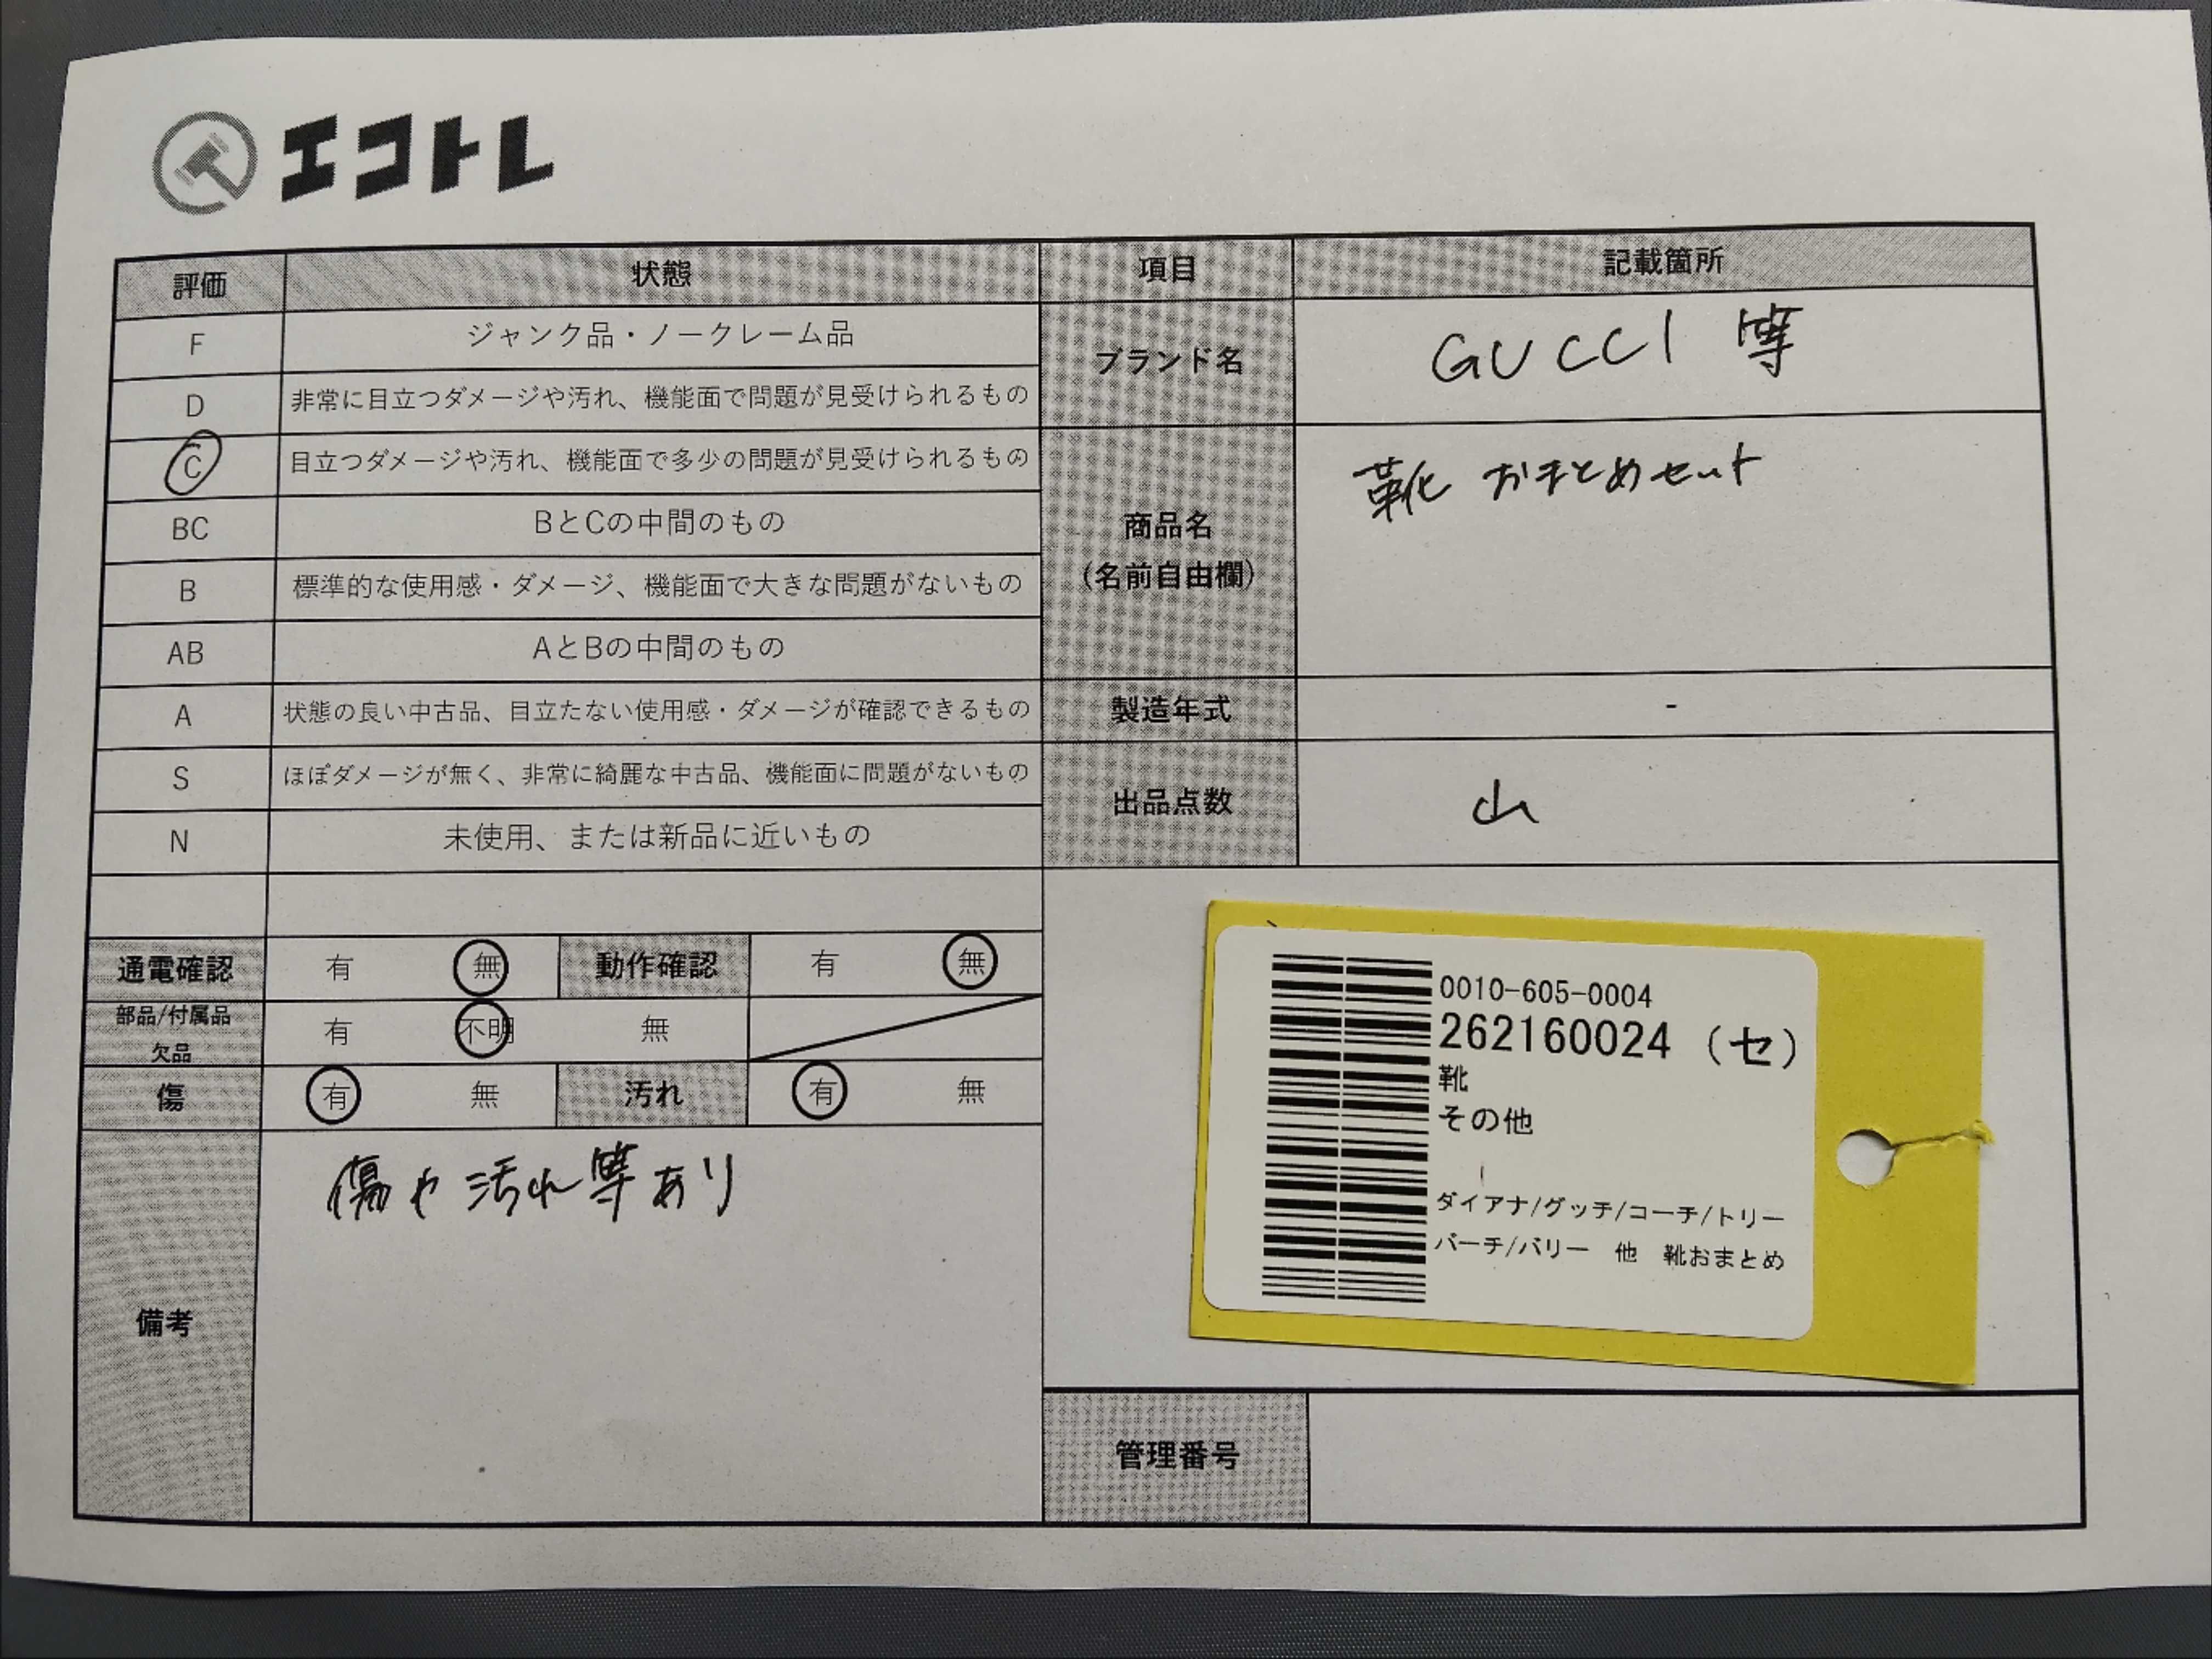 エコトレ
評価 状態 項目 記載箇所
F ジャンク品・ノークレーム品
D 非常に目立つダメージや汚れ、機能面で問題が見受けられるもの
C 目立つダメージや汚れ、機能面で多少の問題が見受けられるもの
BC BとCの中間のもの
B 標準的な使用感・ダメージ、機能面で大きな問題がないもの
AB AとBの中間のもの
A 状態の良い中古品、目立たない使用感・ダメージが確認できるもの
S ほぼダメージが無く、非常に綺麗な中古品、機能面に問題がないもの
N 未使用、または新品に近いもの
ブランド名 GUCCI 等
商品名 靴 おまとめセット
(名前自由欄)
製造年式 -
出品点数 山
通電確認 有 無 動作確認 有 無
部品/付属品
欠品 有 不明 無
傷 有 無 汚れ 有 無
備考 傷や汚れ等あり
0010-605-0004
262160024 (セ)
靴
その他
ダイアナ/グッチ/コーチ/トリー
バーチ/バリー 他 靴おまとめ
管理番号